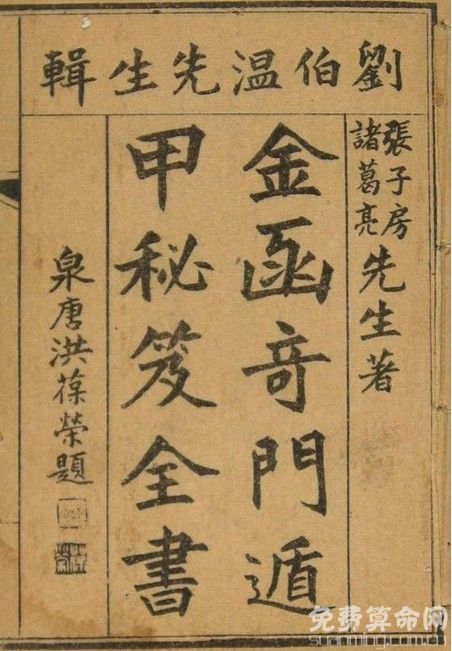 劉伯温先生輯
張子房
諸葛亮
先生著
金函奇門遁
甲秘笈全書
泉唐洪葆榮題
免费算命网